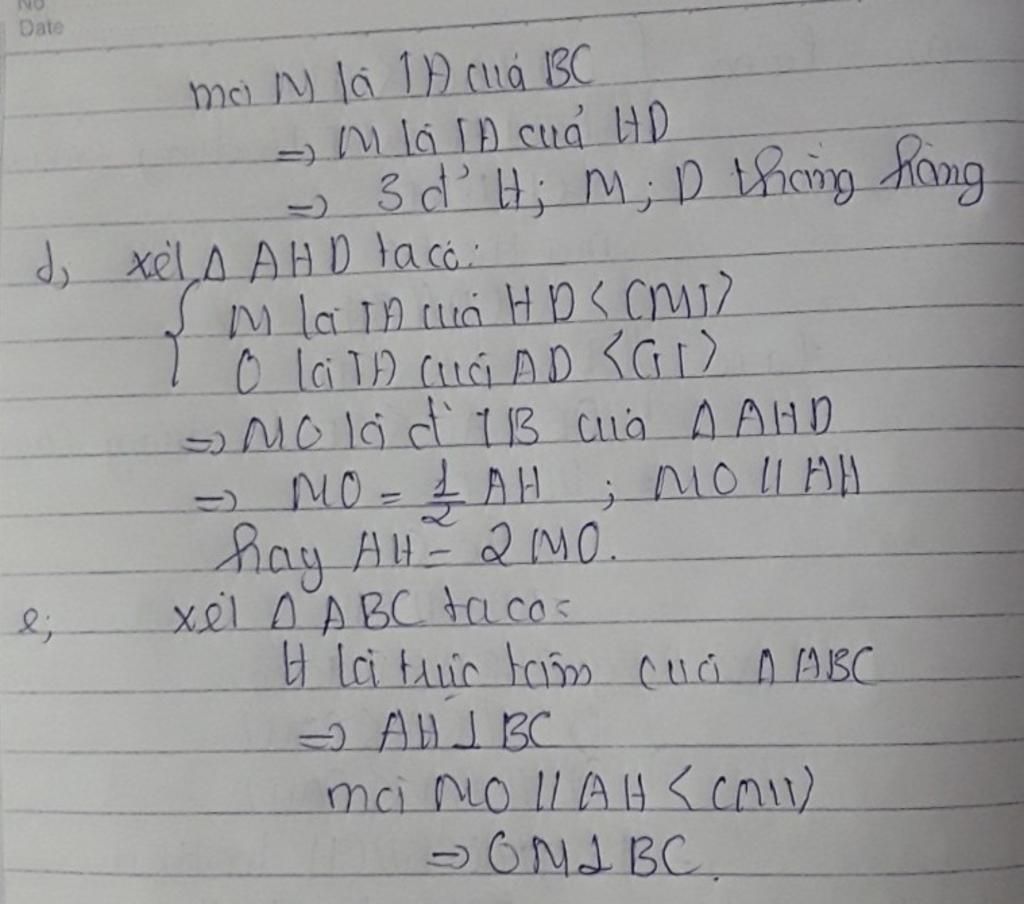 No
Date
mà M là TĐ của BC
=> M là TĐ của HD
=> 3 đ' H; M; D thẳng hàng
d, xét Δ AHD ta có:
{ M là TĐ của HD <CMT>
O là TĐ của AD <GT>
=> MO là đ' TB của Δ AHD
=> MO = 1/2 AH ; MO // AH
hay AH = 2 MO.
e; xét Δ ABC ta có:
H là trực tâm của Δ ABC
=> AH ⊥ BC
mà MO // AH <cmt>
=> OM ⊥ BC.